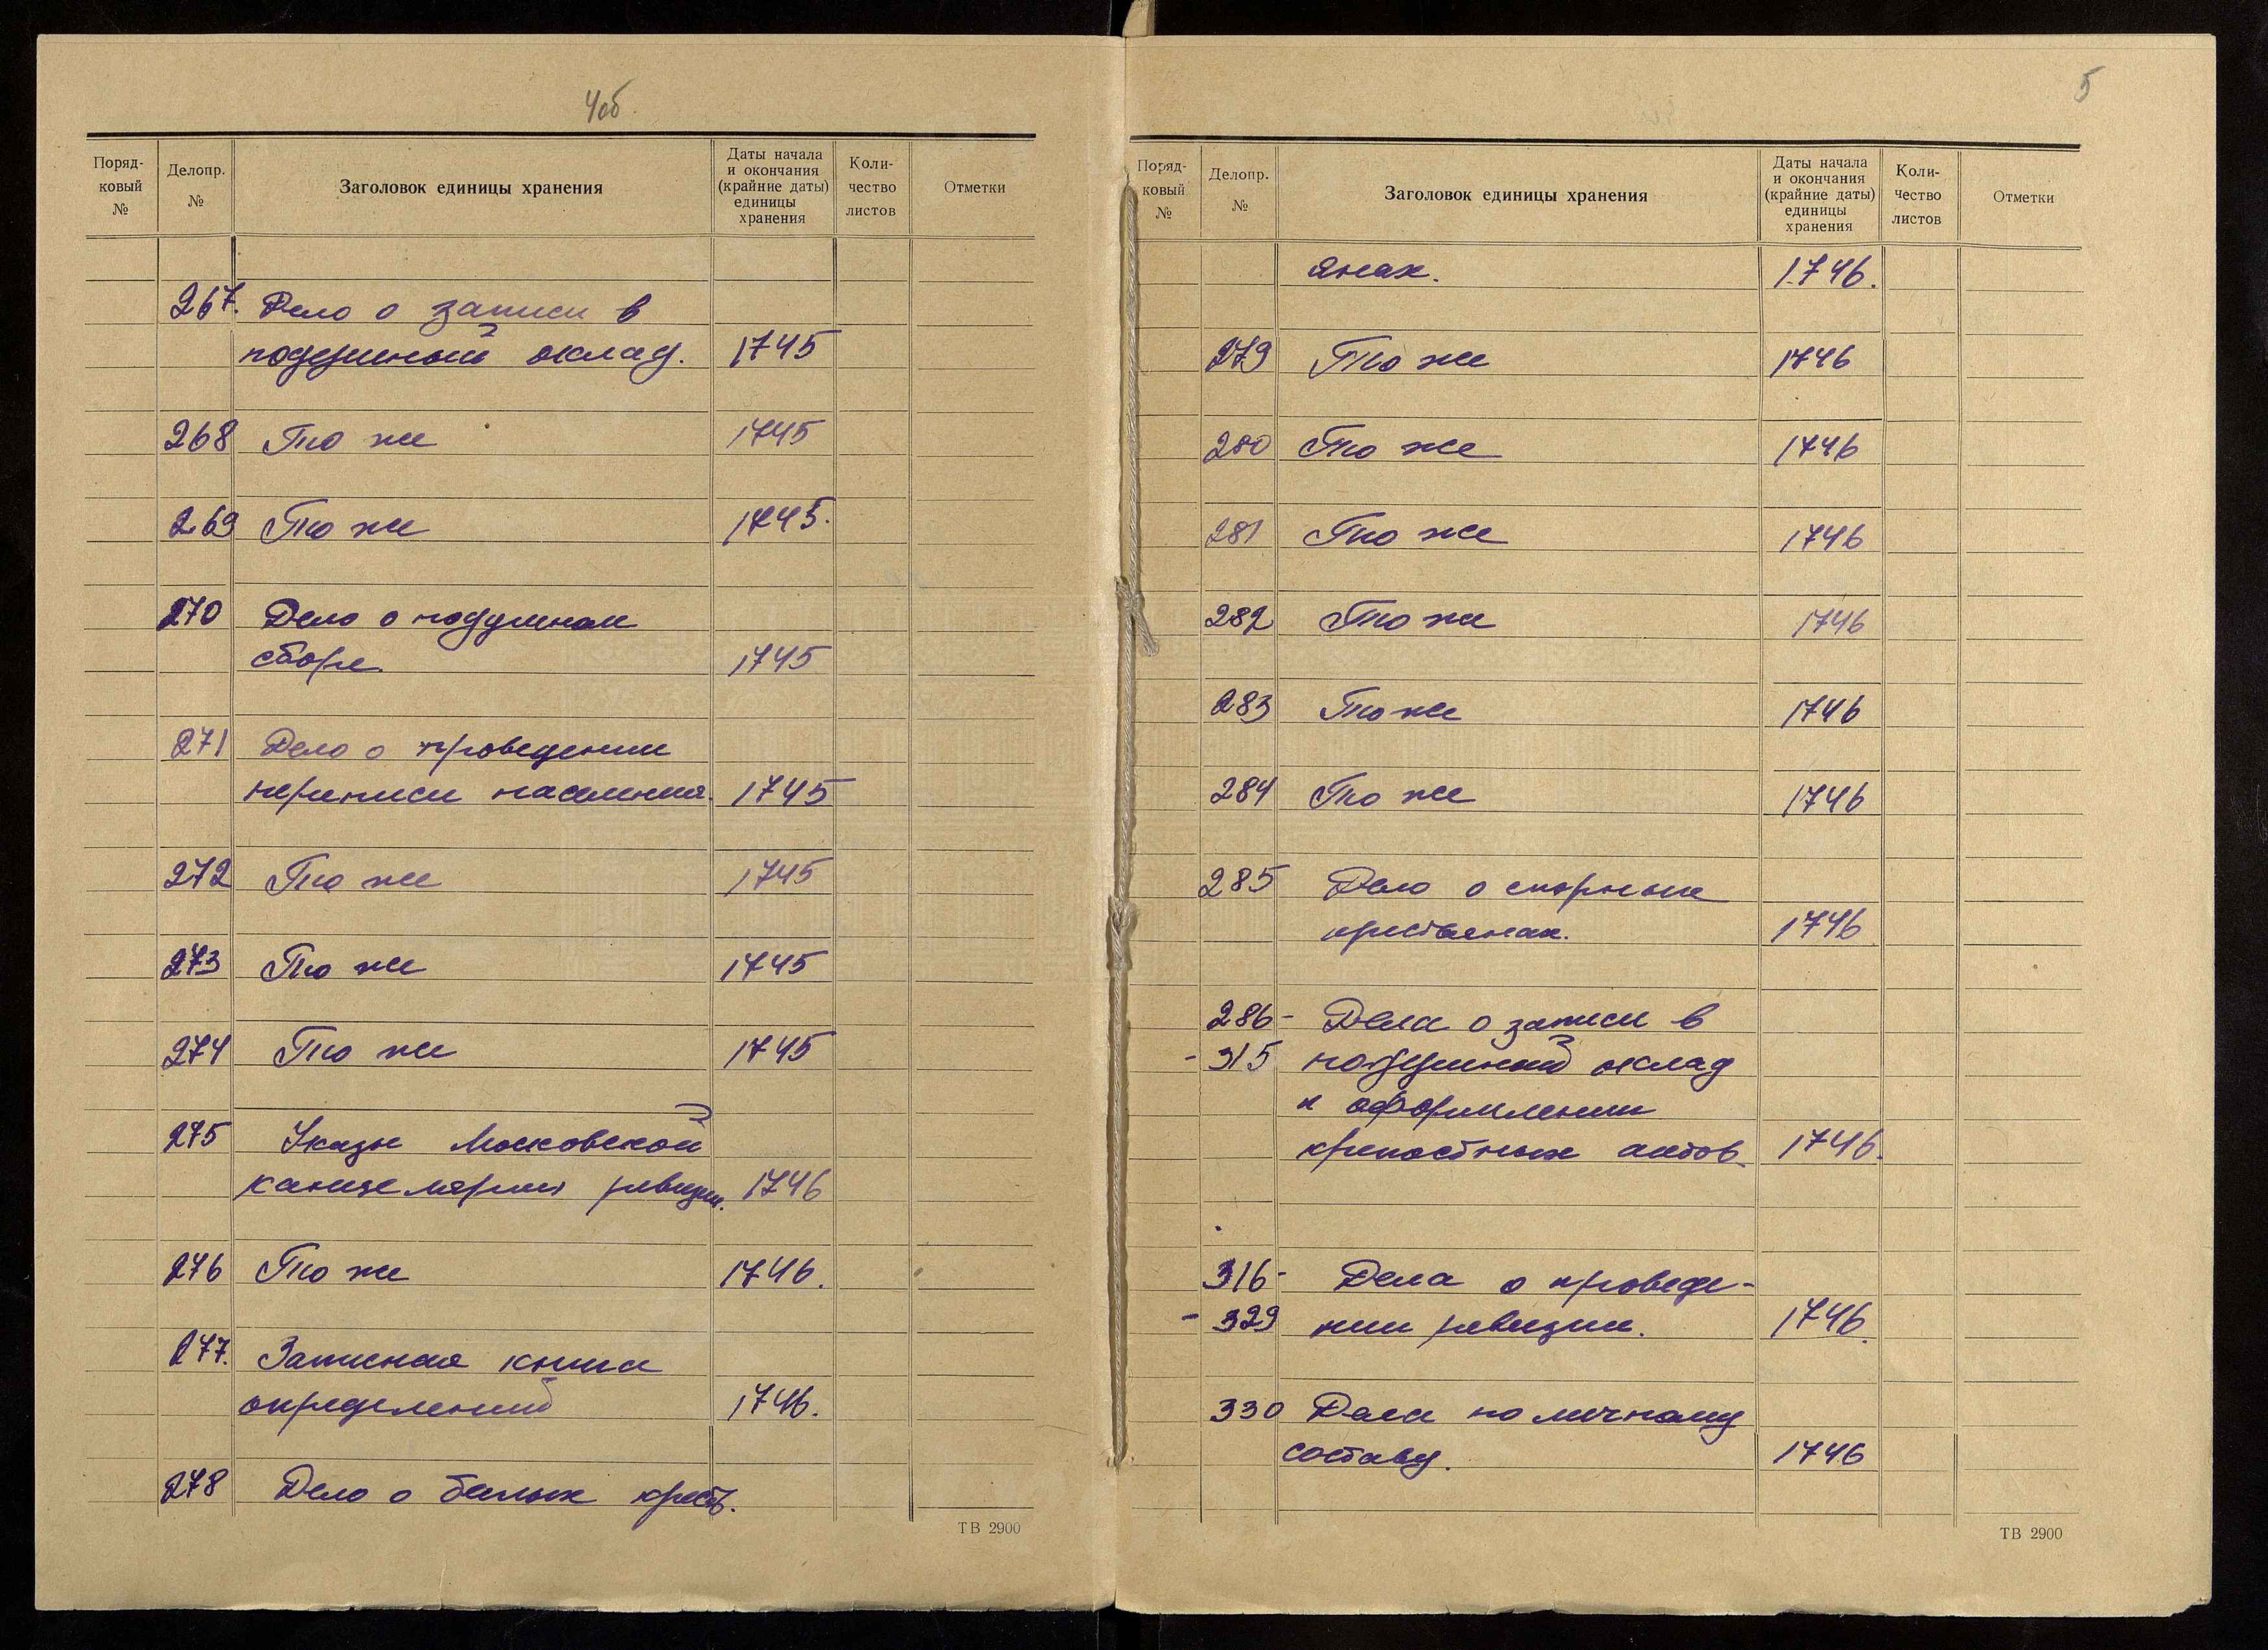 4об.
Поряд-
ковый
№
Делопр.
№
Заголовок единицы хранения
Даты начала
и окончания
(крайние даты)
единицы
хранения
Коли-
чество
листов
Отметки
267. Дело о записи в
подушный оклад. 1745
268 То же 1745
269 То же 1745.
270 Дело о подушном
сборе. 1745
271 Дело о проведении
переписи населения. 1745
272 То же 1745
273 То же 1745
274 То же 1745
275 Указы Московской
канцелярии ревизии. 1746
276 То же 1746.
277. Записная книга
определений 1746.
278 Дело о беглых кресть.
ТВ 2900
5
Поряд-
ковый
№
Делопр.
№
Заголовок единицы хранения
Даты начала
и окончания
(крайние даты)
единицы
хранения
Коли-
чество
листов
Отметки
янах. 1746.
279 То же 1746
280 То же 1746
281 То же 1746
282 То же 1746
283 То же 1746
284 То же 1746
285 Дело о спорных
крестьянах. 1746
286- Дела о записи в
-315 подушный оклад
и оформлении
крепостных актов 1746.
316- Дела о проведе-
-329 нии ревизии. 1746.
330 Дела по личному
составу. 1746
ТВ 2900